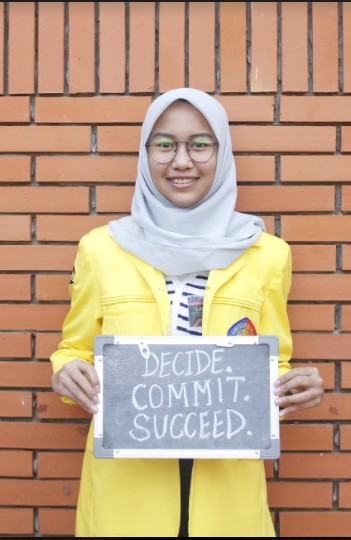 DECIDE.
COMMIT.
SUCCEED.